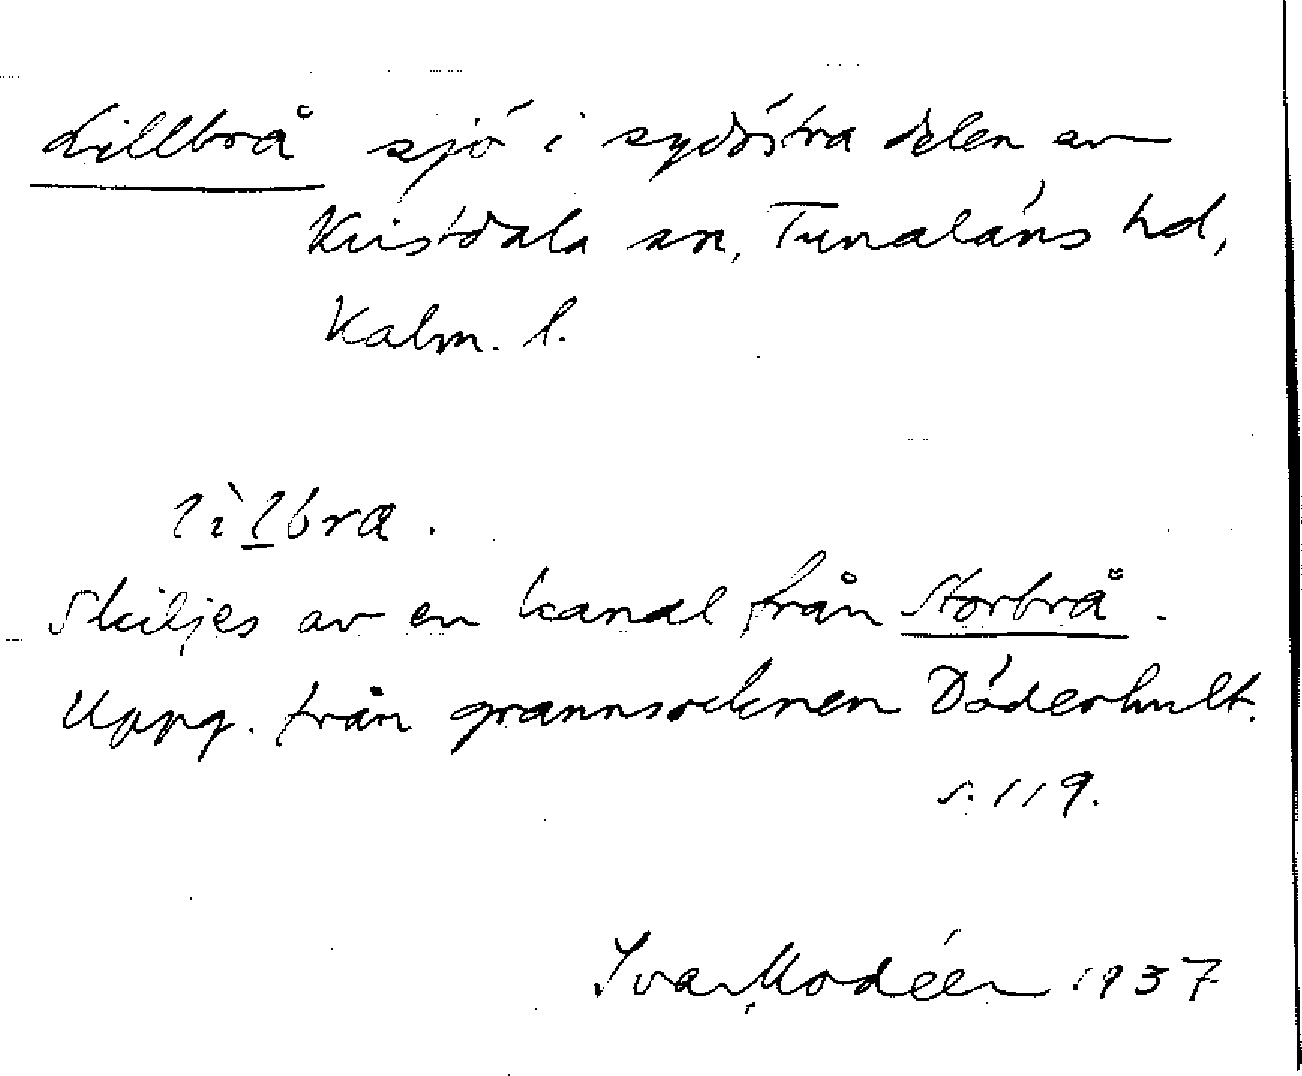 Lillbrå sjö i sydöstra delen av
Kristdala sn, Tunaläns hd,
Kalm. l.
lìlbra.
Skiljes av en kanal från Storbrå.
Uppg. från grannsocknen Döderhult.
s. 119.
Ivar Modéer 1937